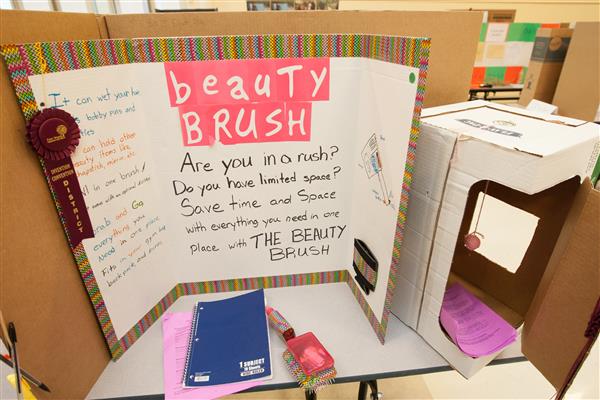 beauty
BRUSH
Are you in a rush?
Do you have limited space?
Save time and Space
with everything you need in one
Place with THE BEAUTY
BRUSH
It can wet your hair
bobby pins and
can hold other
items like
chapstick, mirror, etc.
all in one brush!
come with an optional
Grab and Go
everything you
Need in one place
Fits in your gym bag
back pack and purse
INVENTION
CONVENTION
DISTRICT
1 SUBJECT